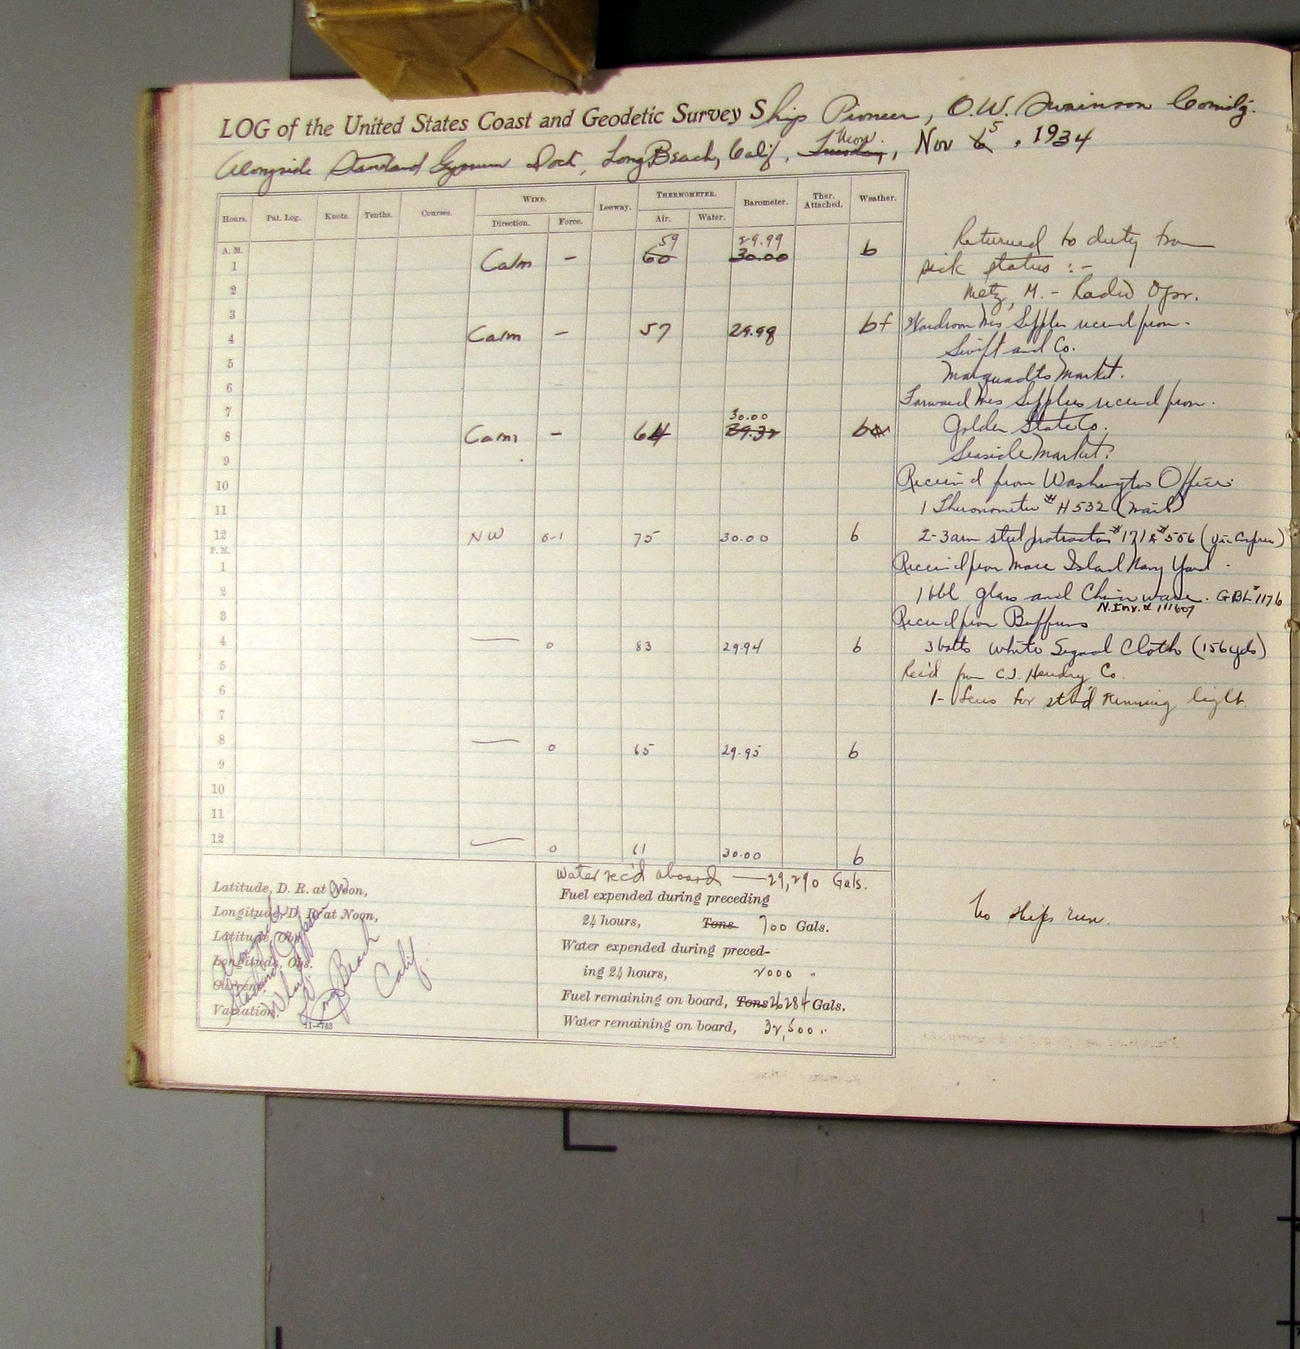 LOG of the United States Coast and Geodetic Survey Ship Pioneer, O.W. Swainson Com'd'g.
Alongside Standard Gypsum Dock, Long Beach, Calif, Tuesday Mon., Nov 6 5, 1934
Hours. Pat. Log. Knots. Tenths. Courses. WIND. Direction. Force. Leeway. THERMOMETER. Air. Water. Barometer. Ther. Attached. Weather.
A. M.
59 29.99
1 Calm – 60 30.00 b
2
3
4 Calm – 57 29.98 bf
5
6
7
30.00
8 Calm – 64 29.32 b
9
10
11
12 NW 0-1 75 30.00 b
P. M.
1
2
3
4 — 0 83 29.94 b
5
6
7
8 — 0 65 29.95 b
9
10
11
12 — 0 61 30.00 b
Returned to duty from
sick status :-
Metz, M. - Radio Opr.
Wardroom Mess Supplies received from -
Swift and Co.
Marquadts Market.
Forward Mess Supplies received from.
Golden State Co.
Seaside Market.
Received from Washington Office:
1 Thermometer # H532 (mail)
2-3 arm steel protractors # 171 & # 556 (via Express)
Received from Mare Island Navy Yard.
1 bbl glass and China ware. GBL # 1176
N. Inv. # 111607
Received from Buffums
3 bolts white Signal Cloth (156 yds)
Rec'd from C.J. Hendry Co.
1- Lens for stb'd running light.
No ships run.
Latitude, D. R. at Noon,
Longitude, D. R. at Noon,
Latitude, Obs.
Longitude, Obs.
Current,
Variation,
Alongside
Standard Gypsum
Wharf
Long Beach
Calif.
11—4763
Water rec'd aboard — 29,290 Gals.
Fuel expended during preceding
24 hours, Tons 700 Gals.
Water expended during preced-
ing 24 hours, 2000 "
Fuel remaining on board, Tons 26284 Gals.
Water remaining on board, 32,500 "